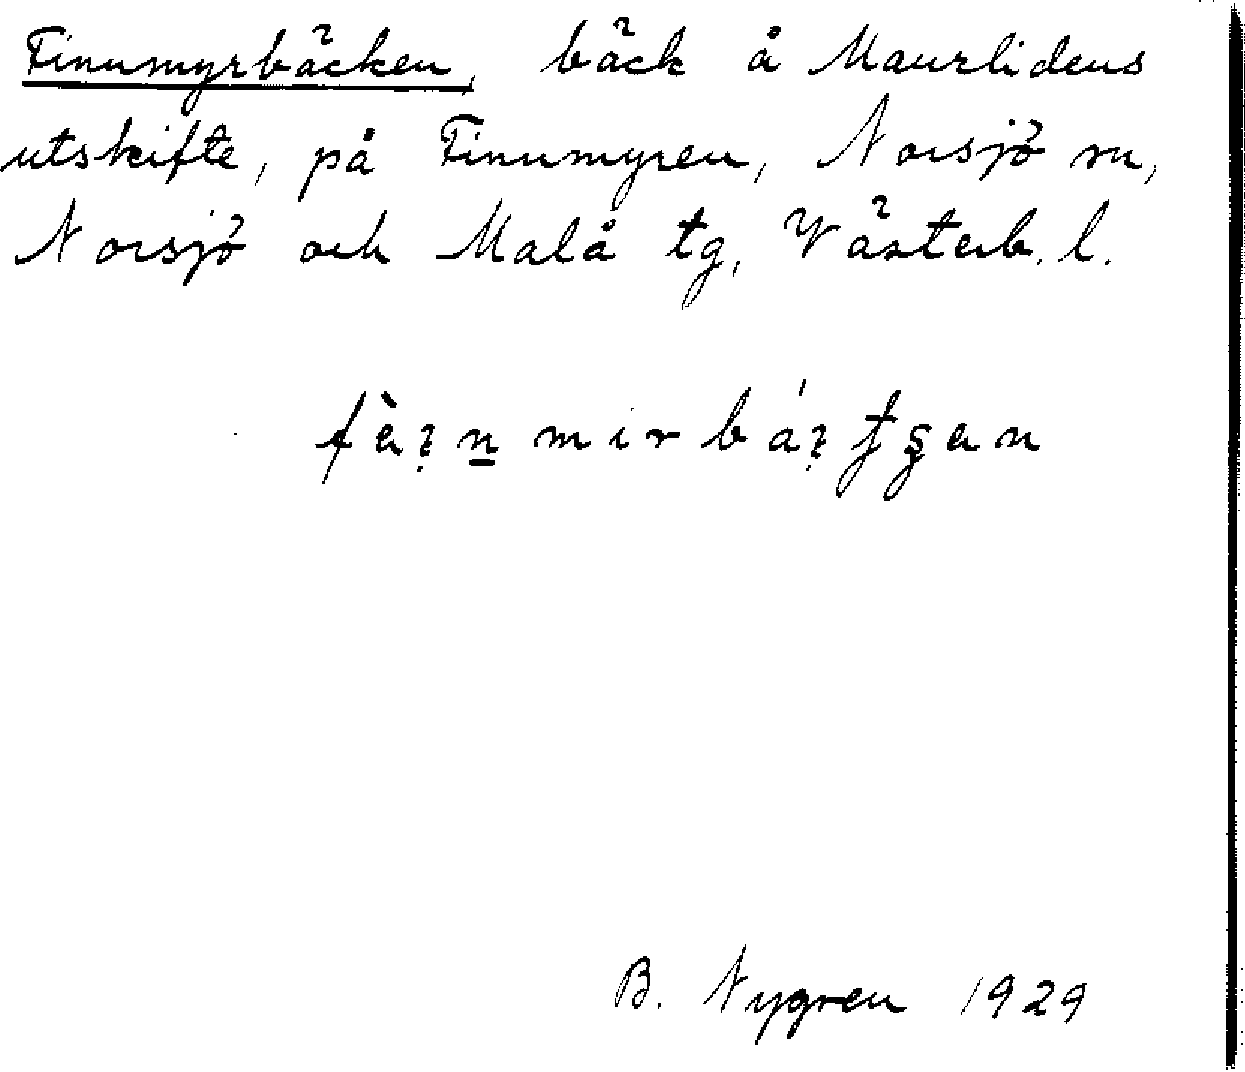 Finnmyrbäcken, bäck å Maurlidens
utskifte, på Finnmyren, Norsjö sn,
Norsjö och Malå tg, Västerb. l.
B. Nygren 1929